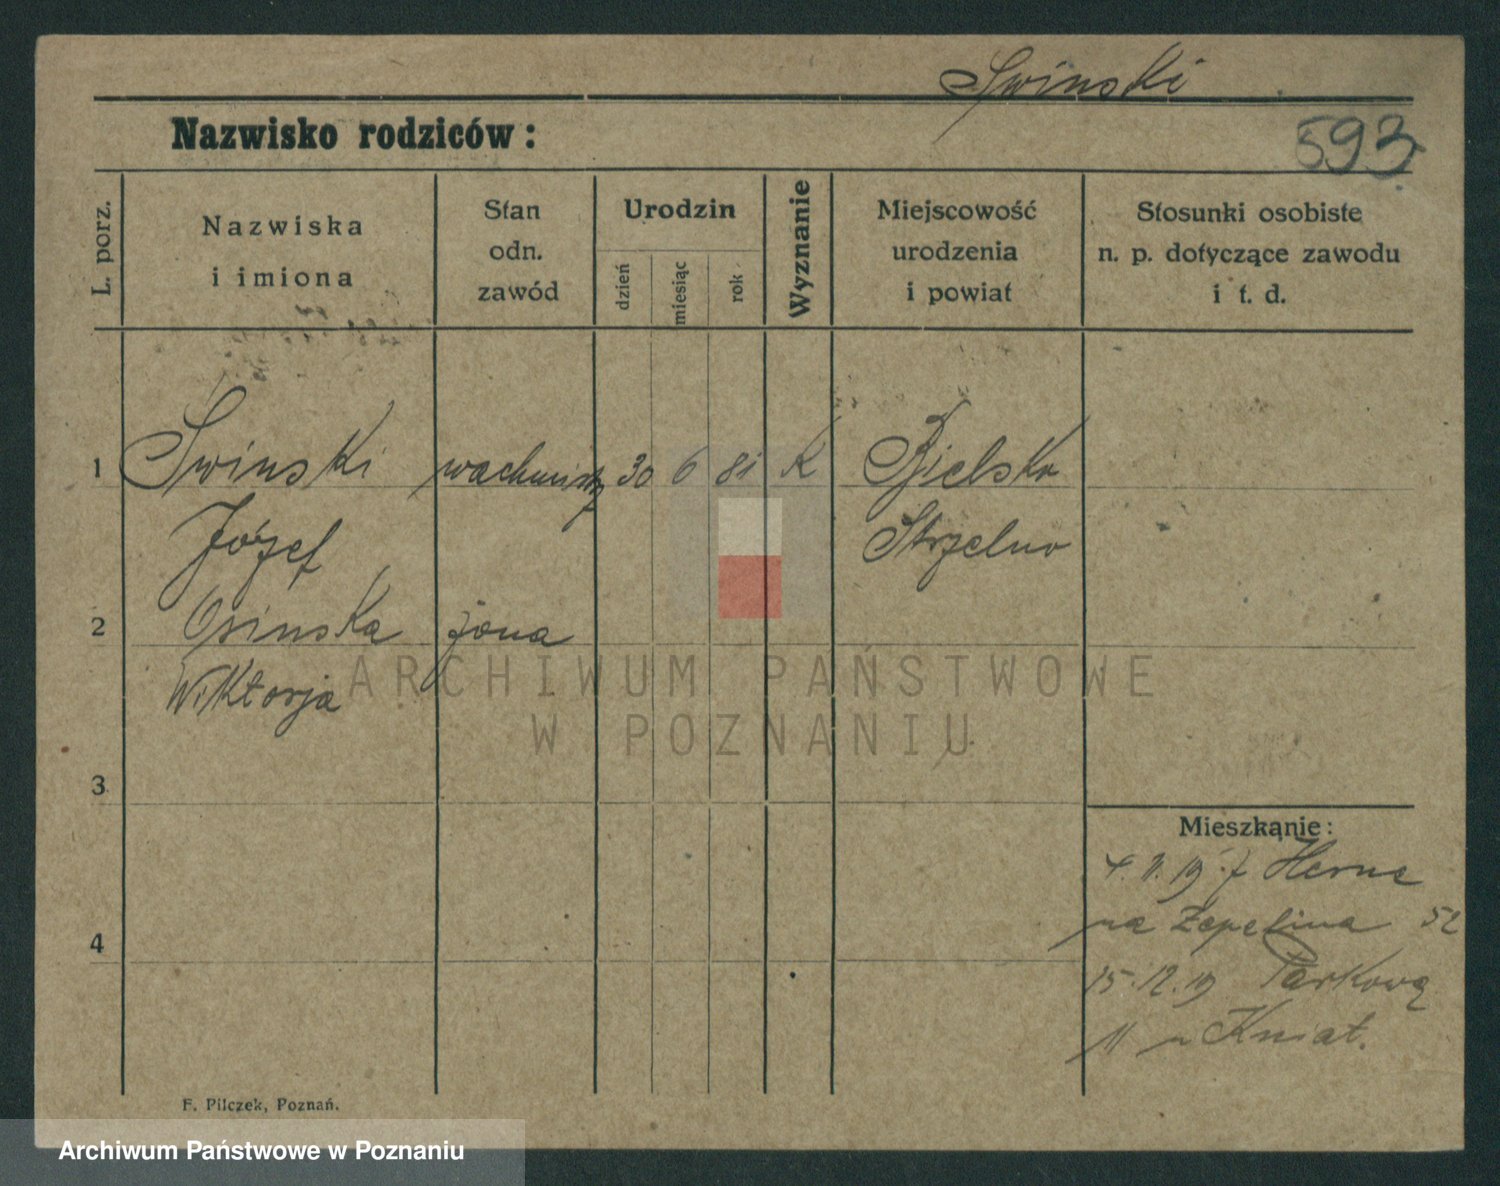 Swinski
Nazwisko rodziców:
593
L. porz.
Nazwiska
i imiona
Stan
odn.
zawód
Urodzin
dzień
miesiąc
rok
Wyznanie
Miejscowość
urodzenia
i powiat
Stosunki osobiste
n. p. dotyczące zawodu
i t. d.
1 Swinski wachmistrz 30 6 81 K Bielsko
Józef Strzelno
2 Osinska żona
Wiktorja
ARCHIWUM PAŃSTWOWE
W POZNANIU
3
Mieszkanie:
4. 11. 19 z Herne
na Zepelina 52
4
15. 12. 19 Parkową
11 u Kniat.
F. Pilczek, Poznań.
Archiwum Państwowe w Poznaniu